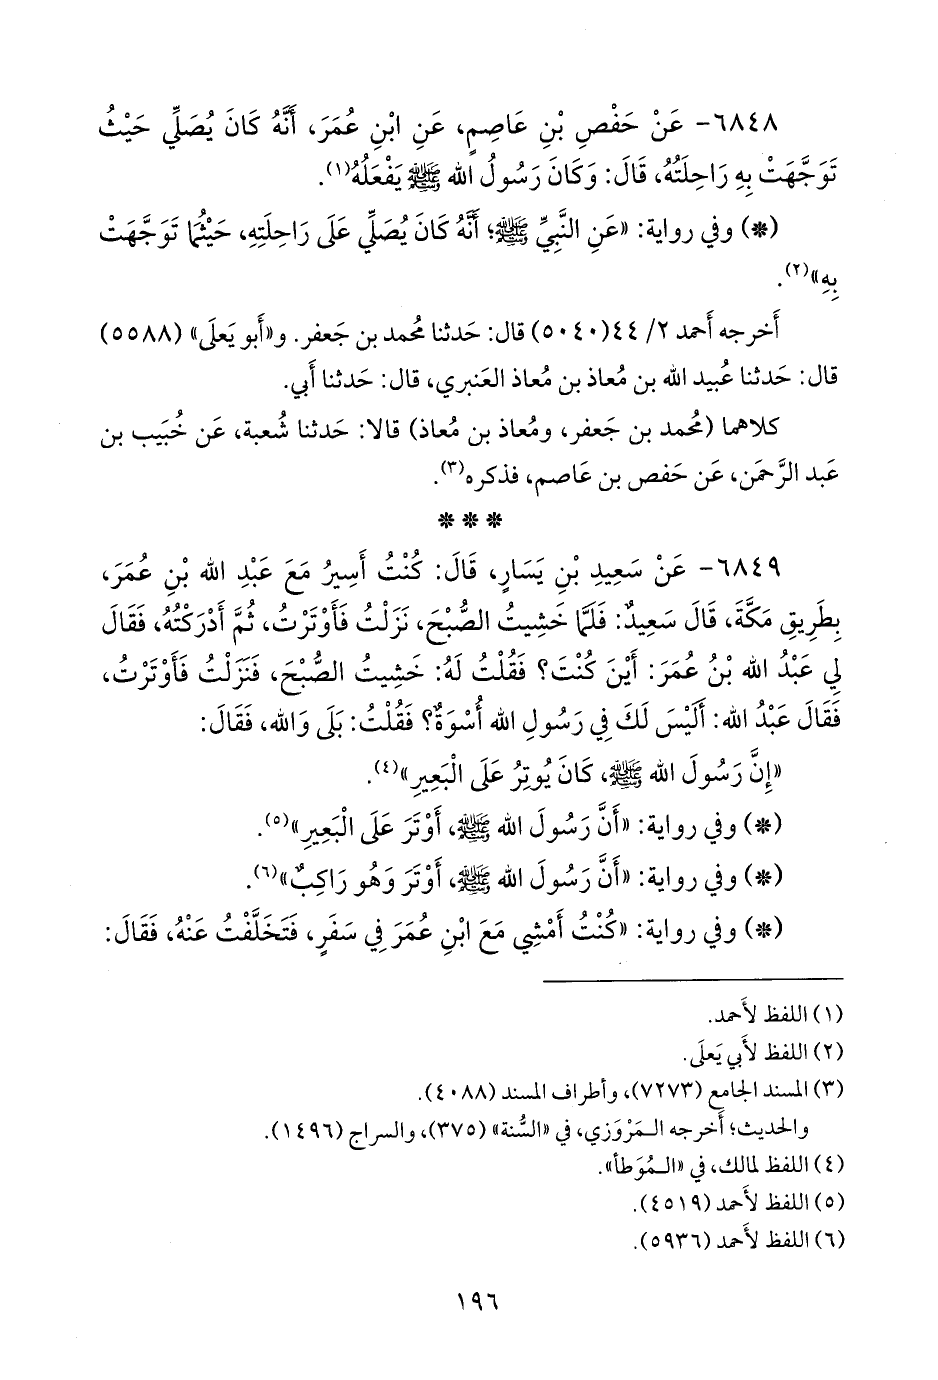 ٦٨٤٨- عَنْ حَفْصِ بْنِ عَاصِمٍ، عَنِ ابْنِ عُمَرَ، أَنَّهُ كَانَ يُصَلِّي حَيْثُ
تَوَجَّهَتْ بِهِ رَاحِلَتُهُ، قَالَ: وَكَانَ رَسُولُ الله ﷺ يَفْعَلُهُ(١).
(*) وفي رواية: «عَنِ النَّبِيِّ ﷺ؛ أَنَّهُ كَانَ يُصَلِّي عَلَى رَاحِلَتِهِ، حَيْثُمَا تَوَجَّهَتْ
بِهِ»(٢).
أَخرجه أَحمد ٢/ ٤٤(٥٠٤٠) قال: حَدثنا مُحمد بن جَعفر. و«أَبو يَعلَى» (٥٥٨٨)
قال: حَدثنا عُبيد الله بن مُعاذ بن مُعاذ العَنبري، قال: حَدثنا أَبي.
كلاهما (مُحمد بن جَعفر، ومُعاذ بن مُعاذ) قالا: حَدثنا شُعبة، عَن خُبَيب بن
عَبد الرَّحمَن، عَن حَفص بن عَاصم، فذكره(٣).
* * *
٦٨٤٩- عَنْ سَعِيدِ بْنِ يَسَارٍ، قَالَ: كُنْتُ أَسِيرُ مَعَ عَبْدِ الله بْنِ عُمَرَ،
بِطَرِيقِ مَكَّةَ، قَالَ سَعِيدٌ: فَلَمَّا خَشِيتُ الصُّبْحَ، نَزَلْتُ فَأَوْتَرْتُ، ثُمَّ أَدْرَكْتُهُ، فَقَالَ
لِي عَبْدُ الله بْنُ عُمَرَ: أَيْنَ كُنْتَ؟ فَقُلْتُ لَهُ: خَشِيتُ الصُّبْحَ، فَنَزَلْتُ فَأَوْتَرْتُ،
فَقَالَ عَبْدُ الله: أَلَيْسَ لَكَ فِي رَسُولِ الله أُسْوَةٌ؟ فَقُلْتُ: بَلَى وَالله، فَقَالَ:
«إِنَّ رَسُولَ الله ﷺ، كَانَ يُوتِرُ عَلَى الْبَعِيرِ»(٤).
(*) وفي رواية: «أَنَّ رَسُولَ الله ﷺ، أَوْتَرَ عَلَى الْبَعِيرِ»(٥).
(*) وفي رواية: «أَنَّ رَسُولَ الله ﷺ، أَوْتَرَ وَهُو رَاكِبٌ»(٦).
(*) وفي رواية: «كُنْتُ أَمْشِي مَعَ ابْنِ عُمَرَ فِي سَفَرٍ، فَتَخَلَّفْتُ عَنْهُ، فَقَالَ:
(١) اللفظ لأَحمد.
(٢) اللفظ لأَبي يَعلَى.
(٣) المسند الجامع (٧٢٧٣)، وأطراف المسند (٤٠٨٨).
والحديث؛ أَخرجه الـمَرْوَزي، في «السُّنة» (٣٧٥)، والسراج (١٤٩٦).
(٤) اللفظ لمالك، في «الـمُوَطأ».
(٥) اللفظ لأَحمد (٤٥١٩).
(٦) اللفظ لأَحمد (٥٩٣٦).
١٩٦